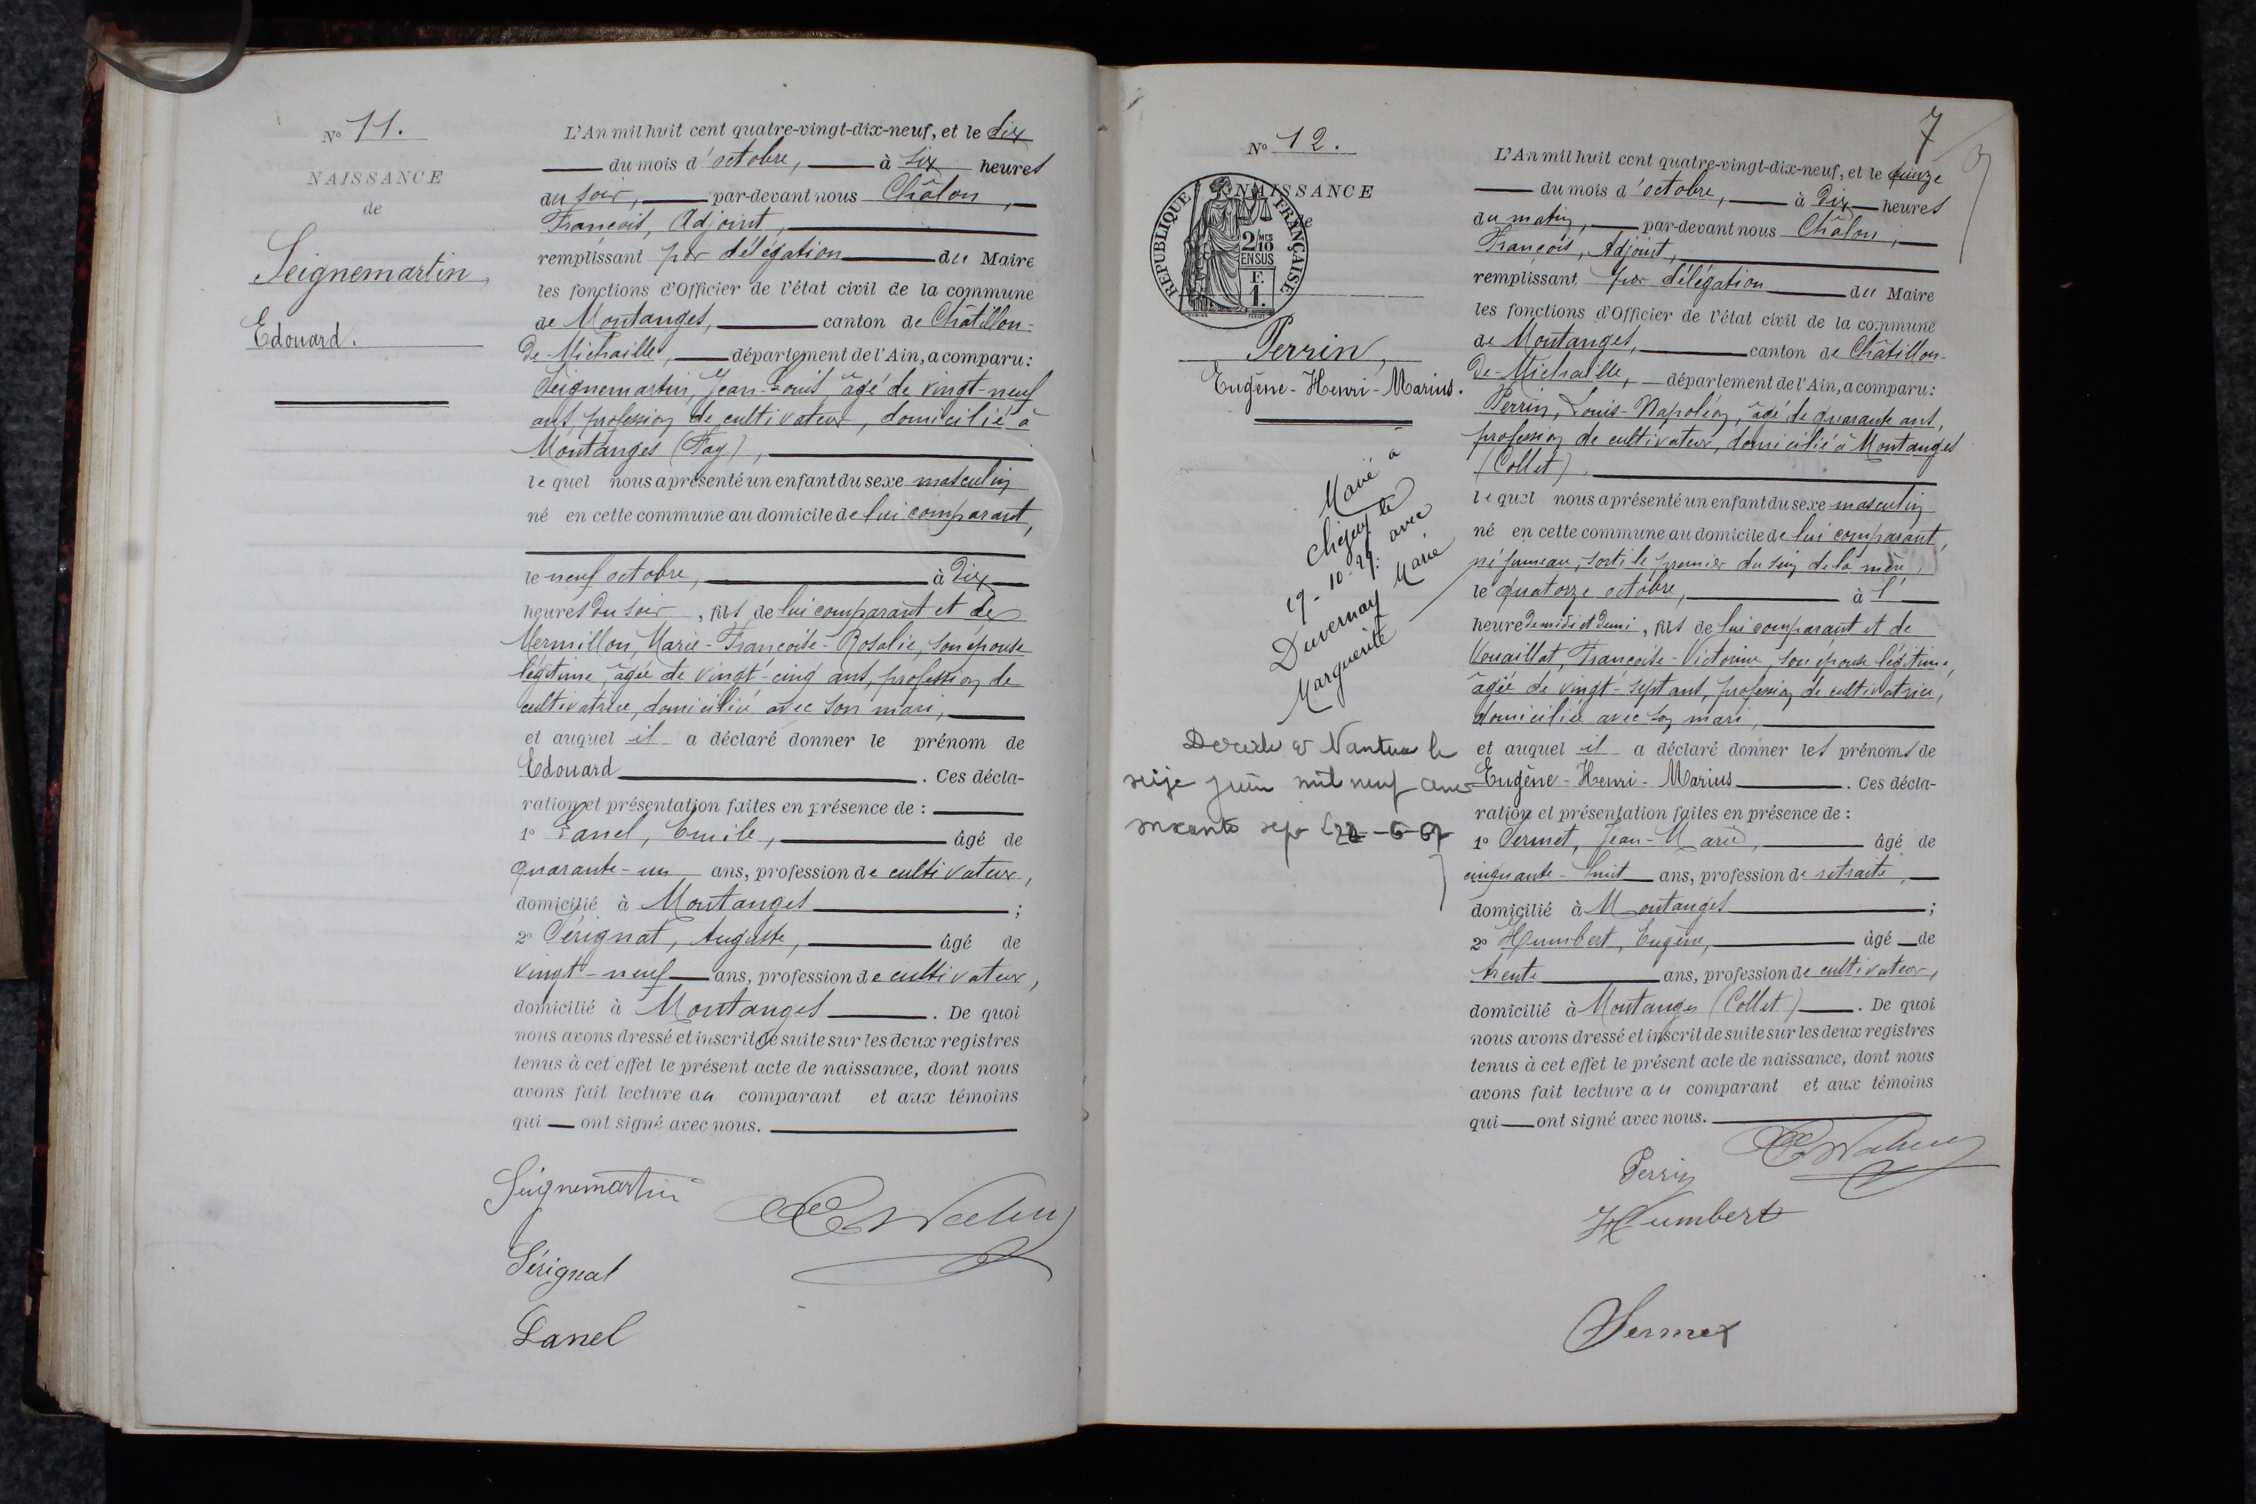 No 11.
NAISSANCE
de
Seignemartin,
Edouard.
L'An mil huit cent quatre-vingt-dix-neuf, et le dix
du mois d'octobre, à six heures
du soir, par-devant nous Châlon,
François, Adjoint,
remplissant par délégation du Maire
les fonctions d'Officier de l'état civil de la commune
de Montanges, canton de Châtillon-
De-Michaille, département de l'Ain, a comparu:
Seignemartin, Jean-Louis, âgé de vingt-neuf
ans, profession de cultivateur, domicilié à
Montanges (Fay),
lequel nous a présenté un enfant du sexe masculin
né en cette commune au domicile de lui comparant,
le neuf octobre, à dix
heures du soir, fils de lui comparant et de
Mermillon, Marie-Françoise-Rosalie, son épouse
légitime, âgée de vingt-cinq ans, profession de
cultivatrice, domiciliée avec son mari,
et auquel il a déclaré donner le prénom de
Edouard. Ces décla-
ration et présentation faites en présence de :
1o Lanel, Emile, âgé de
quarante-un ans, profession de cultivateur,
domicilié à Montanges ;
2o Sérignat, Auguste, âgé de
vingt-neuf ans, profession de cultivateur,
domicilié à Montanges. De quoi
nous avons dressé et inscrit de suite sur les deux registres
tenus à cet effet le présent acte de naissance, dont nous
avons fait lecture au comparant et aux témoins
qui ont signé avec nous.
Seignemartin
Sérignat
Lanel
7
No 12.
NAISSANCE
de
RÉPUBLIQUE FRANÇAISE
2/10 MES
EN SUS
F.
1.
Perrin,
Eugène-Henri-Marius.
Marié à
le
19-10-29. avec
Duvernay Marie
Marguerite
Décédé à Nantua le
seize juin mil neuf cent
soixante sept
L'An mil huit cent quatre-vingt-dix-neuf, et le quinze
du mois d'octobre, à dix heures
du matin, par-devant nous Châlon,
François, Adjoint,
remplissant par délégation du Maire
les fonctions d'Officier de l'état civil de la commune
de Montanges, canton de Châtillon-
De-Michaille, département de l'Ain, a comparu:
Perrin, Louis-Napoléon, âgé de quarante ans,
profession de cultivateur, domicilié à Montanges
(Collet).
lequel nous a présenté un enfant du sexe masculin
né en cette commune au domicile de lui comparant,
né jumeau, sorti le premier du sein de la mère,
le quatorze octobre, à l'
heure de midi et demi, fils de lui comparant et de
Vouaillat, Françoise-Victorine, son épouse légitime,
âgée de vingt-sept ans, profession de cultivatrice,
domiciliée avec son mari,
et auquel il a déclaré donner les prénoms de
Eugène-Henri-Marius. Ces décla-
ration et présentation faites en présence de :
1o Sermet, Jean-Marie, âgé de
cinquante-huit ans, profession de retraité,
domicilié à Montanges ;
2o Humbert, Eugène, âgé de
trente ans, profession de cultivateur,
domicilié à Montanges (Collet). De quoi
nous avons dressé et inscrit de suite sur les deux registres
tenus à cet effet le présent acte de naissance, dont nous
avons fait lecture au comparant et aux témoins
qui ont signé avec nous.
Perrin
Humbert
Sermet